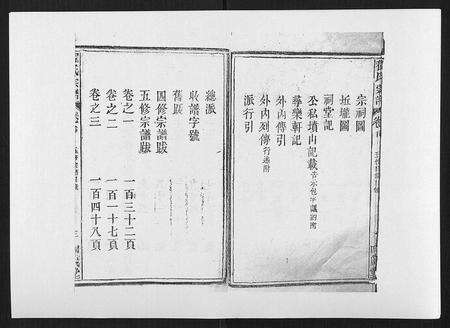 宗祠圖
坵壠圖
祠堂記
公私墳山記載
尋樂軒記
外內傳引
外內列傳
派行引
總派
收譜字號
舊跋
四修宗譜跋
五修宗譜跋
卷之一 一百三十二頁
卷之二 一百一十七頁
卷之三 一百四十八頁